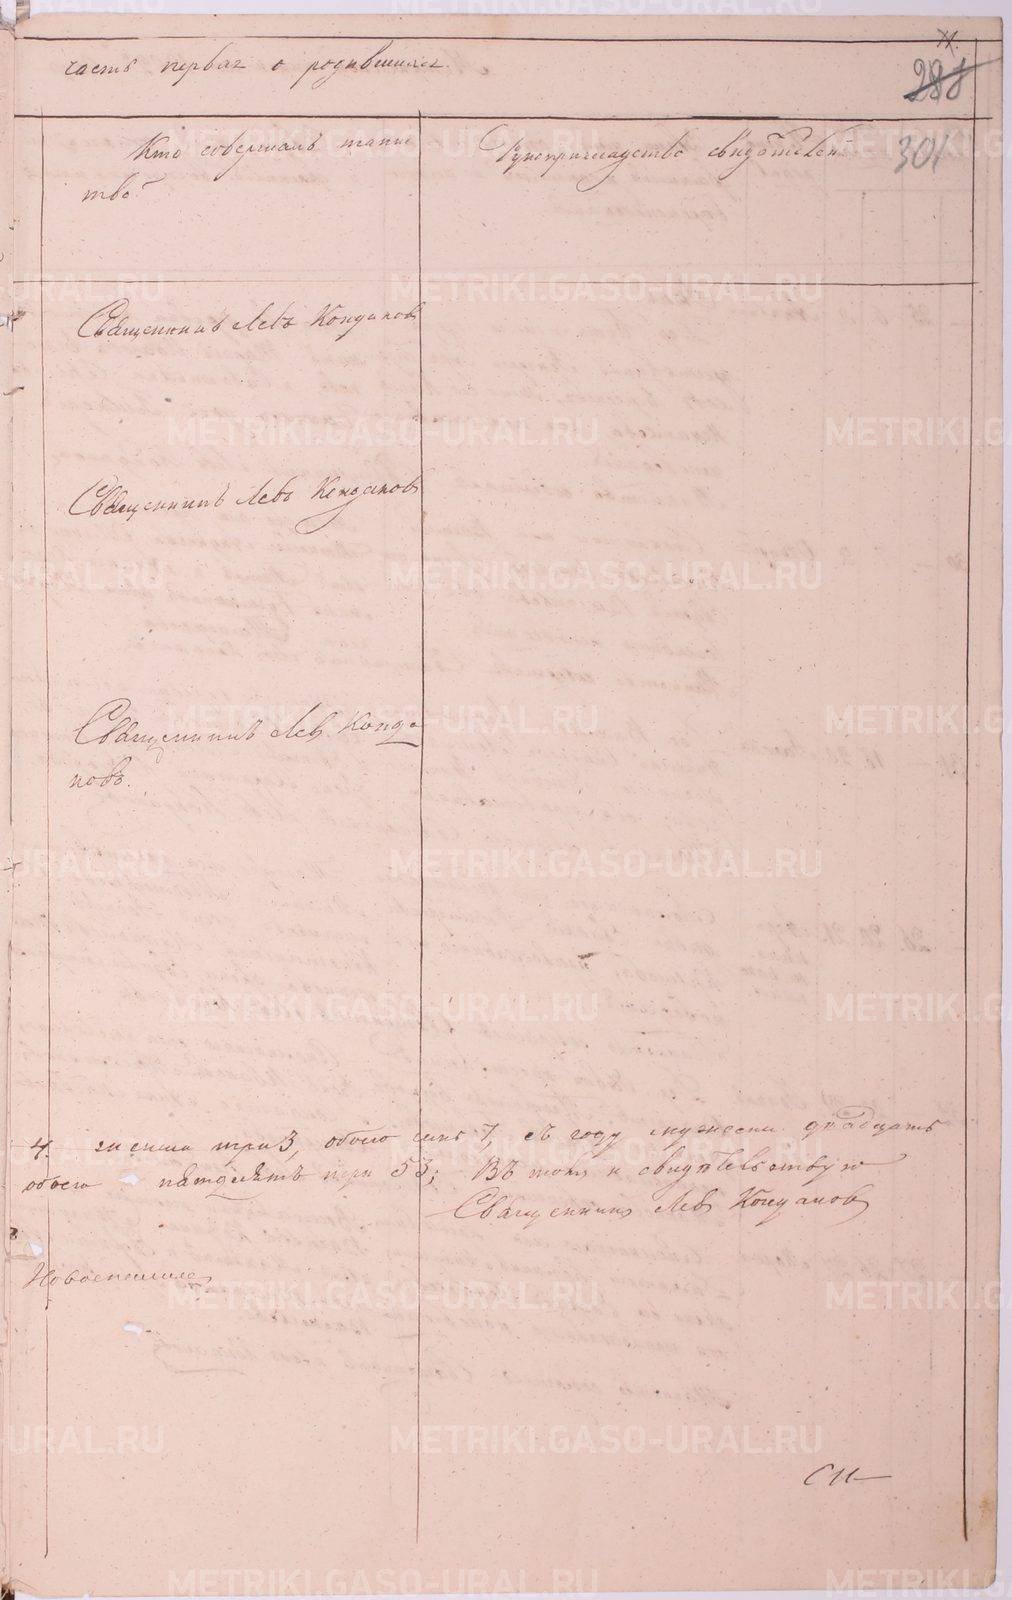 часть первая о родившихся.
288
301
Кто совершалъ таин
ство
Рукоприкладство свидѣтелей
Священникъ Левъ Кондаковъ
Священникъ Левъ Кондаковъ
Священникъ Левъ Конда
ковъ.
4. женска три 3, обоего 7, съ году мужеска двадцать
обоего пятдесятъ три 53; Въ томъ и свидѣтельствую
Священникъ Левъ Кондаковъ
METRIKI.GASO-URAL.RU